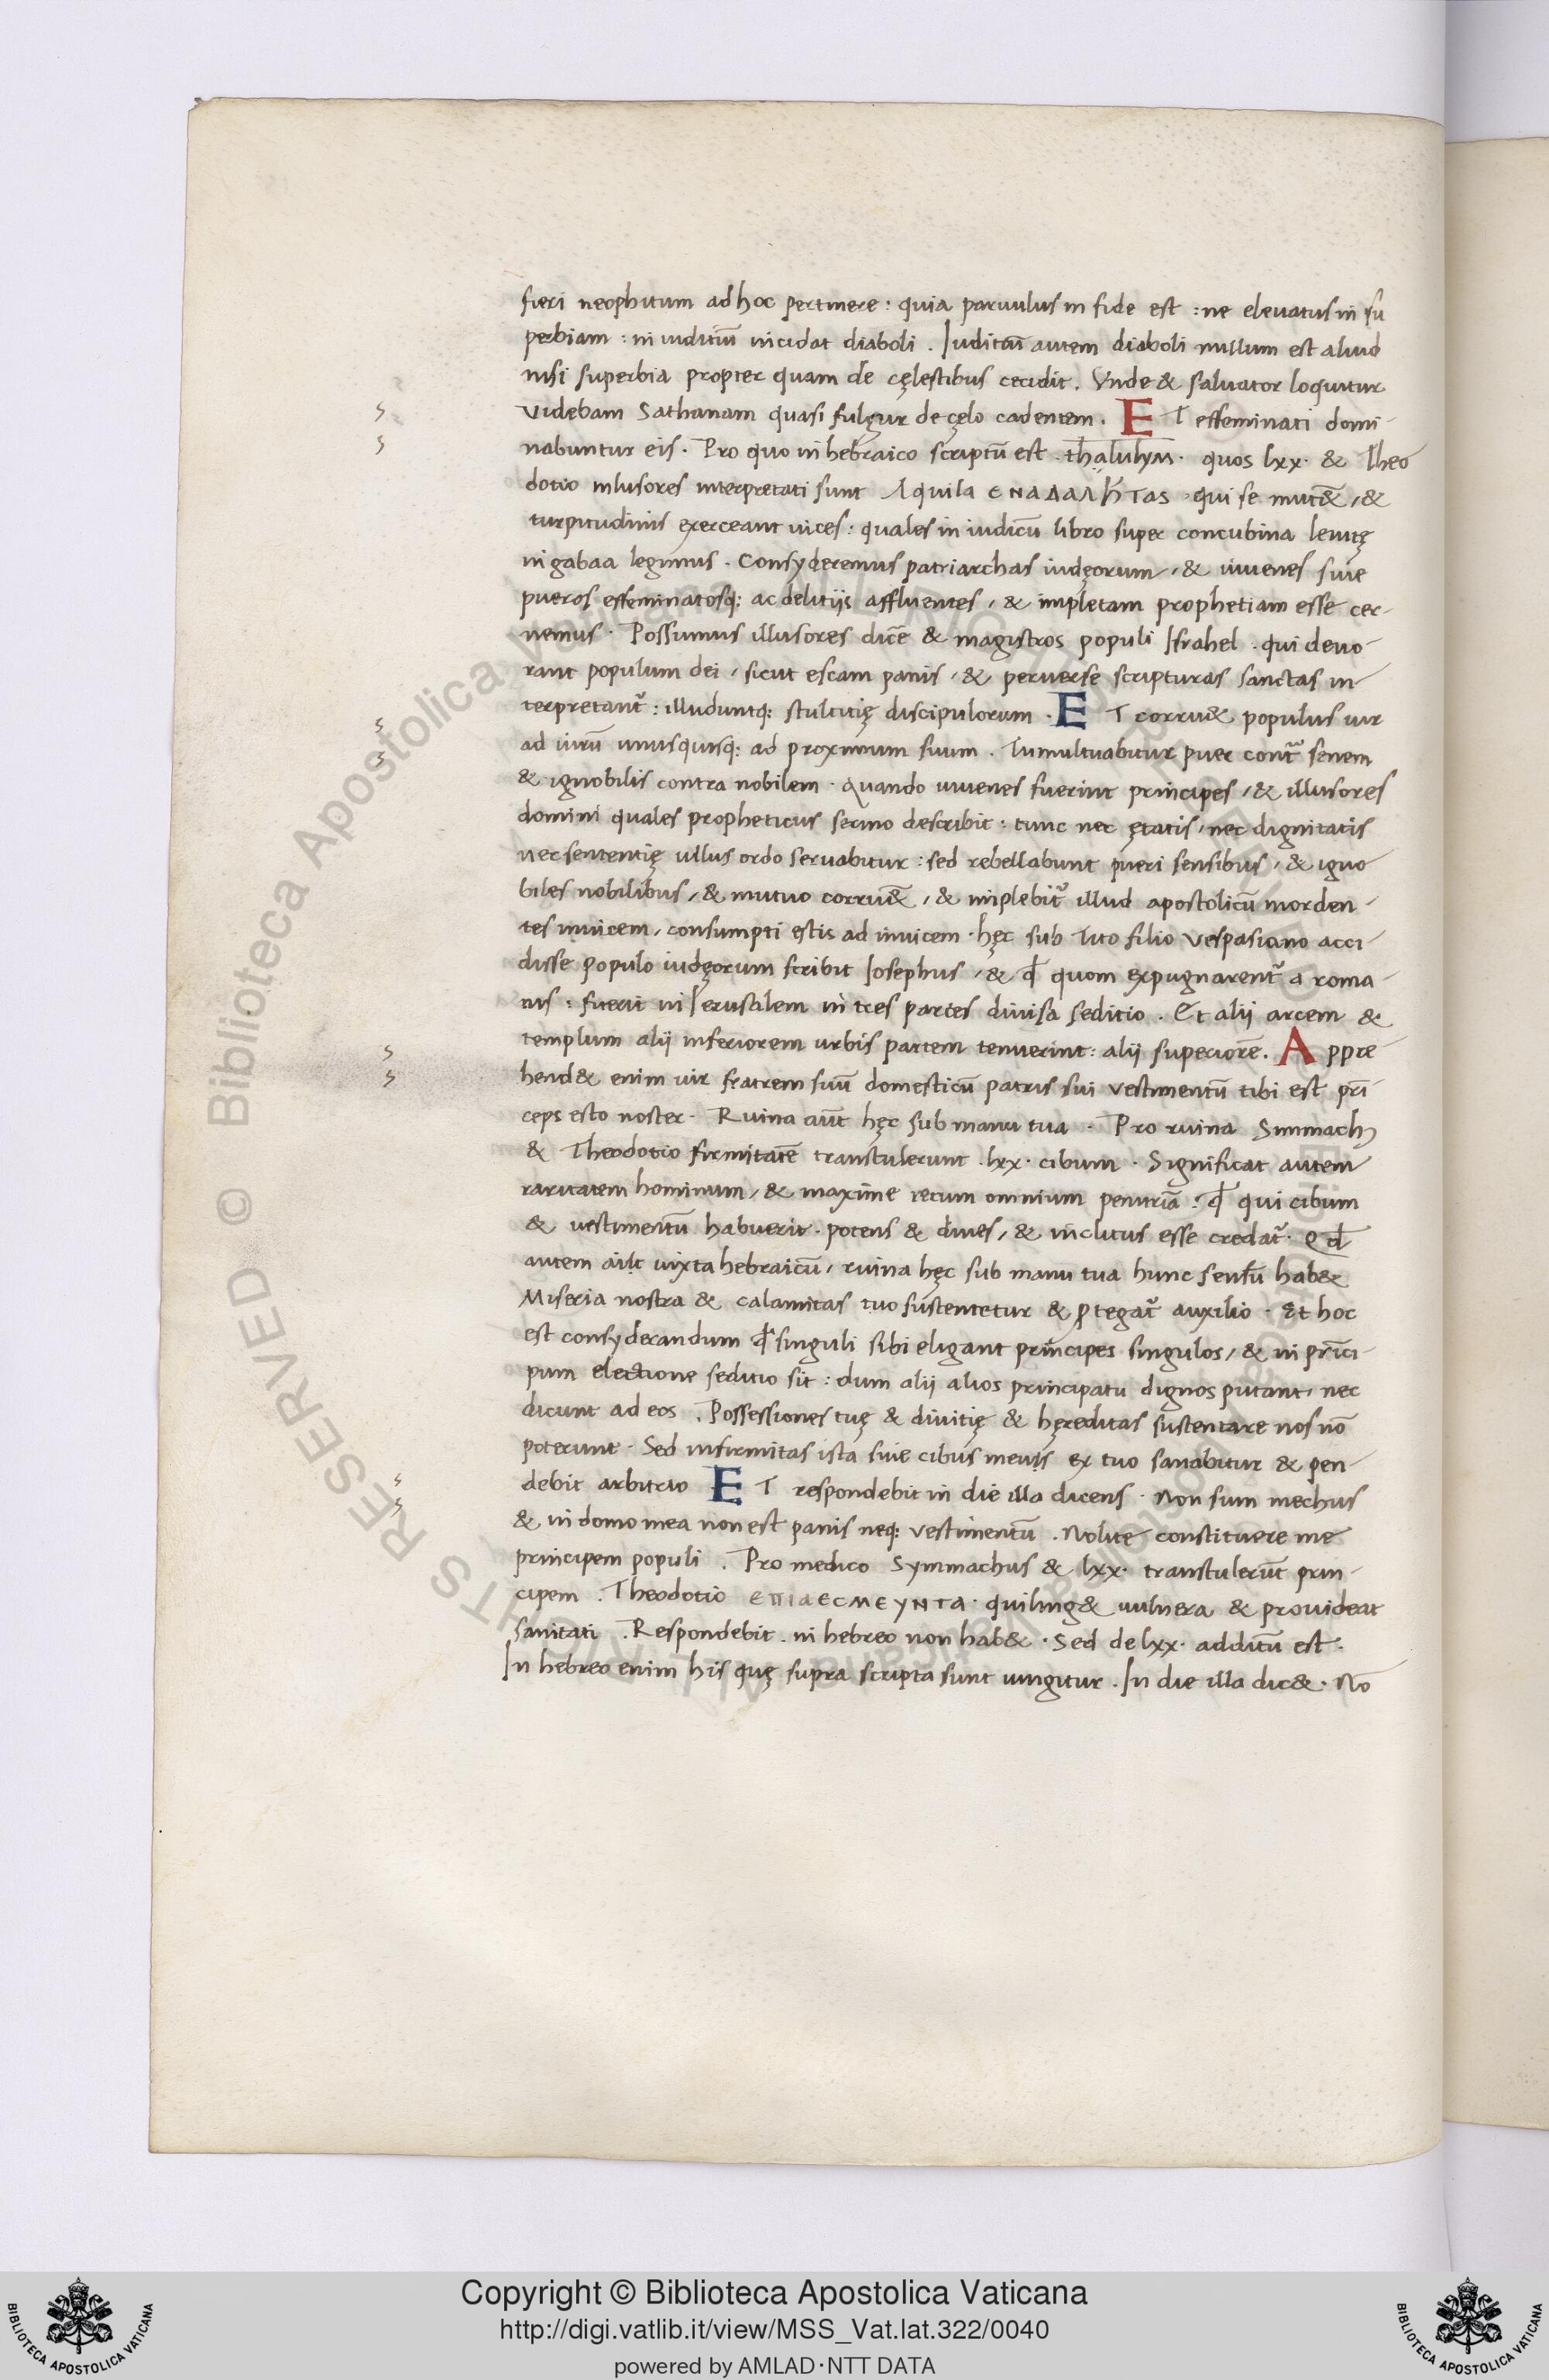 fieri neophitum ad hoc pertinere : quia paruulus in fide est : ne eleuatus in su
perbiam : in iuditiũ incidat diaboli . Iuditiũ autem diaboli nullum est aliud
nisi superbia propter quam de cęlestibus cecidit . Vnde & saluator loquitur
Videbam Sathanam quasi fulgur de cęlo cadentem . ET effeminati domi-
nabuntur eis . Pro quo in hebraico scriptũ est . thalulym̃ . quos lxx . & Theo
dotio inlusores interpretati sunt Aquila ЄΝΑΔΑΛΗΤΑS . qui se mut&̃ , &
turpitudinis exerceant uices : quales in iudicũ libro super concubina leuitę
in gabaa legimus . Consyderemus patriarchas iudęorum , & iuuenes siue
pueros effeminatosq; ac delitijs affluentes , & impletam prophetiam esse cer-
nemus . Possumus illusores dic̃e & magistros populi Israhel . qui deuo-
rant populum dei , sicut escam panis , & peruerse scripturas sanctas in-
terpretant̃ : illuduntq; stultitię discipulorum . ET corru& populus uir
ad uirũ unusquisq; ad proximum suum . Tumultuabitur puer cont̃ senem
& ignobilis contra nobilem . quando iuuenes fuerint principes , & illusores
domini quales propheticus sermo describit : tunc nec ętatis , nec dignitatis
nec sententię ullus ordo seruabitur : sed rebellabunt pueri sensibus , & igno
biles nobilibus , & mutuo corru&̃ , & inplebit̃ illud apostolicũ morden-
tes inuicem , consumpti estis ad inuicem . hęc sub Tito filio Vespasiano acci-
disse populo iudęorum scribit Iosephus , & qđ quom expugnarent̃ a roma-
nis : fuerit in Ierusalem in tres partes diuisa seditio . Et alij arcem &
templum alij inferiorem urbis partem tenuerint : alij superiorẽ . Appre-
hend& enim uir fratrem suũ domesticũ patris sui vestimentũ tibi est prĩ
ceps esto noster . Ruina aũt hęc sub manu tua . Pro ruina Simmachꝰ
& Theodotio firmitatẽ transtulerunt . lxx . cibum . Significat autem
raritatem hominum , & maxime rerum omnium penuriã : qđ qui cibum
& vestimentũ habuerit . potens & diues , & inclitus esse credat̃ . Qđ
autem ait iuxta hebraicũ , ruina hęc sub manu tua hunc sensũ hab&
Miseria nostra & calamitas tuo sustentetur & ꝓtegat̃ auxilio . Et hoc
est consyderandum qđ singuli sibi eligant principes singulos , & in prĩci-
pum electione seditio sit : dum alij alios principatu dignos putant , nec
dicunt ad eos . Possessiones tuę & diuitię & hęreditas sustentare nos nõ
poterunt . Sed infirmitas ista siue cibus meus ex tuo sanabitur & pen-
debit arbitrio ET respondebit in die illa dicens . Non sum mechus
& in domo mea non est panis neq; vestimentũ . Nolite constituere me
principem populi . Pro medico Symmachus & lxx . transtulerũt prin-
cipem . Theodotio ЄΠΙΔЄCΜЄΥΝΤΑ . qui ling& uulnera & prouideat
sanitati . Respondebit . in hebreo non hab& . Sed de lxx . additũ est .
In hebreo enim his quę supra scripta sunt iungitur . In die illa dic& . Nõ
© Biblioteca Apostolica Vaticana ALL RIGHTS RESERVED
Copyright © Biblioteca Apostolica Vaticana
http://digi.vatlib.it/view/MSS_Vat.lat.322/0040
powered by AMLAD·NTT DATA
BIBLIOTECA APOSTOLICA VATICANA
BIBLIOTECA APOSTOLICA VATICANA